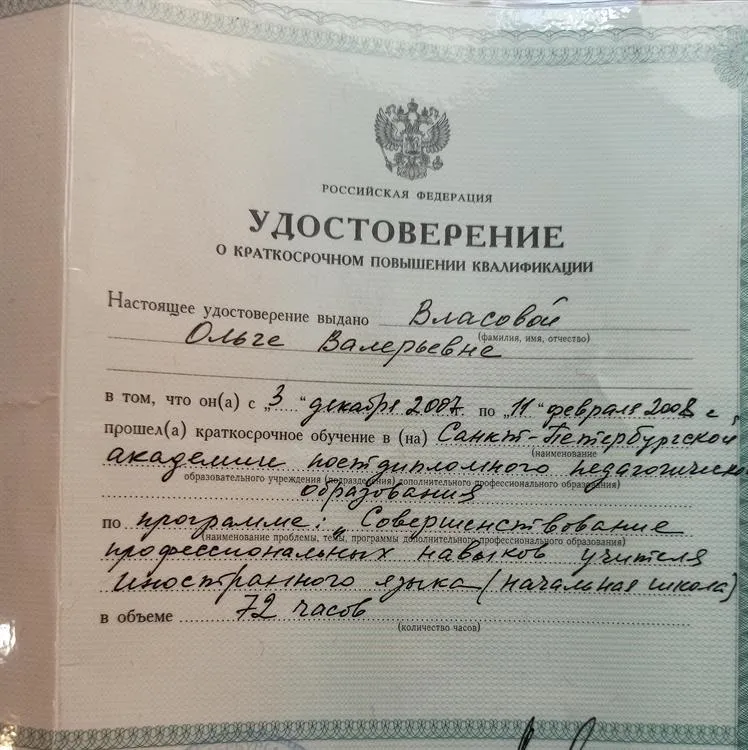 РОССИЙСКАЯ ФЕДЕРАЦИЯ
УДОСТОВЕРЕНИЕ
О КРАТКОСРОЧНОМ ПОВЫШЕНИИ КВАЛИФИКАЦИИ
Настоящее удостоверение выдано Власовой
(фамилия, имя, отчество)
Ольге Валерьевне
в том, что он(а) с „3“ декабря 2007г. по „11“ февраля 2008 г.
прошел(а) краткосрочное обучение в (на) Санкт-Петербургской
(наименование
академии постдипломного педагогическо
образовательного учреждения (подразделения) дополнительного профессионального образования)
образования
по программе: „Совершенствование
(наименование проблемы, темы, программы дополнительного профессионального образования)
профессиональных навыков учителя
иностранного языка (начальная школа)
в объеме 72 часов
(количество часов)